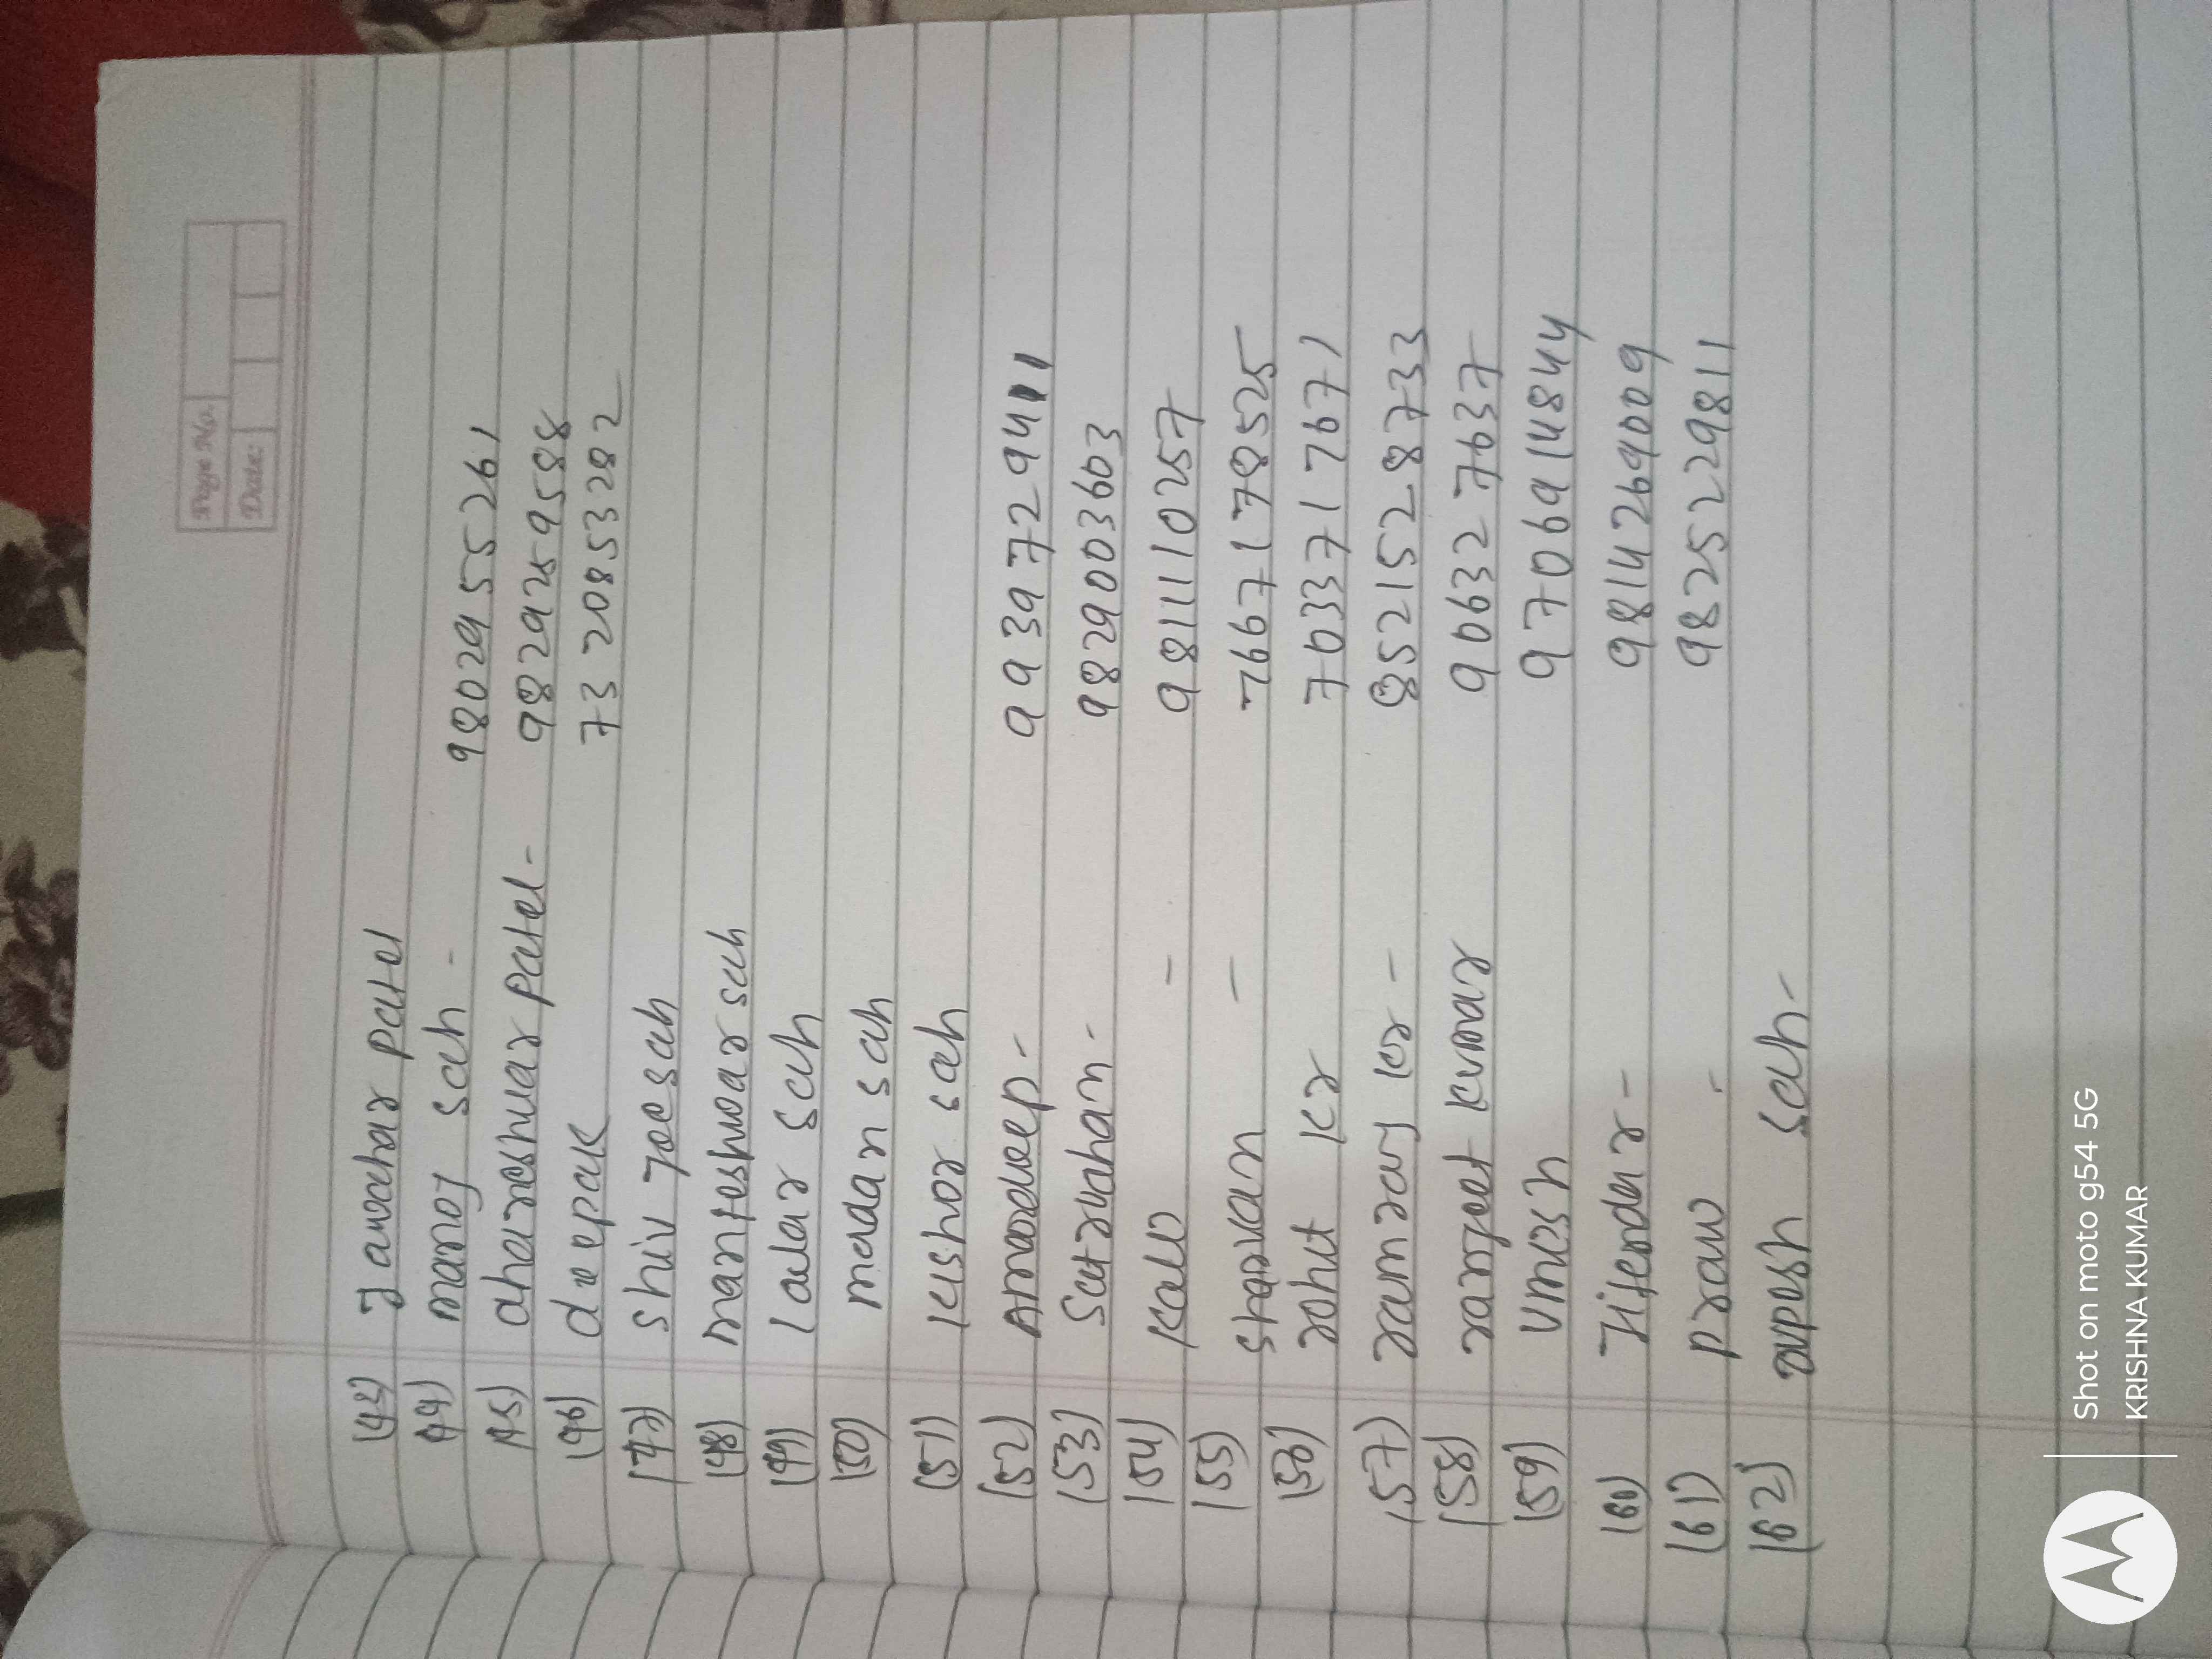 Page No.
Date:
(43) Jawahar patel
(44) manoj sah - 9802955261
(45) dharmeshwar patel - 9829259588
(46) deepak 7320853282
(47) shiv joe sah
(48) manteshwar sah
(49) lalar sah
(50) madan sah
(51) kishor sah
(52) Amardeep - 9939729411
(53) Satrudhan - 9829003603
(54) Kalu - 9811110257
(55) sharwan - 7667178525
(56) rohit kr 7033717671
(57) ramraj kr - 8521528733
(58) ranjeet kumar 9063277637
(59) umesh 9706914844
(60) Jitendar - 9814269009
(61) praw - 9825229811
(62) rupesh sah -
Shot on moto g54 5G
KRISHNA KUMAR